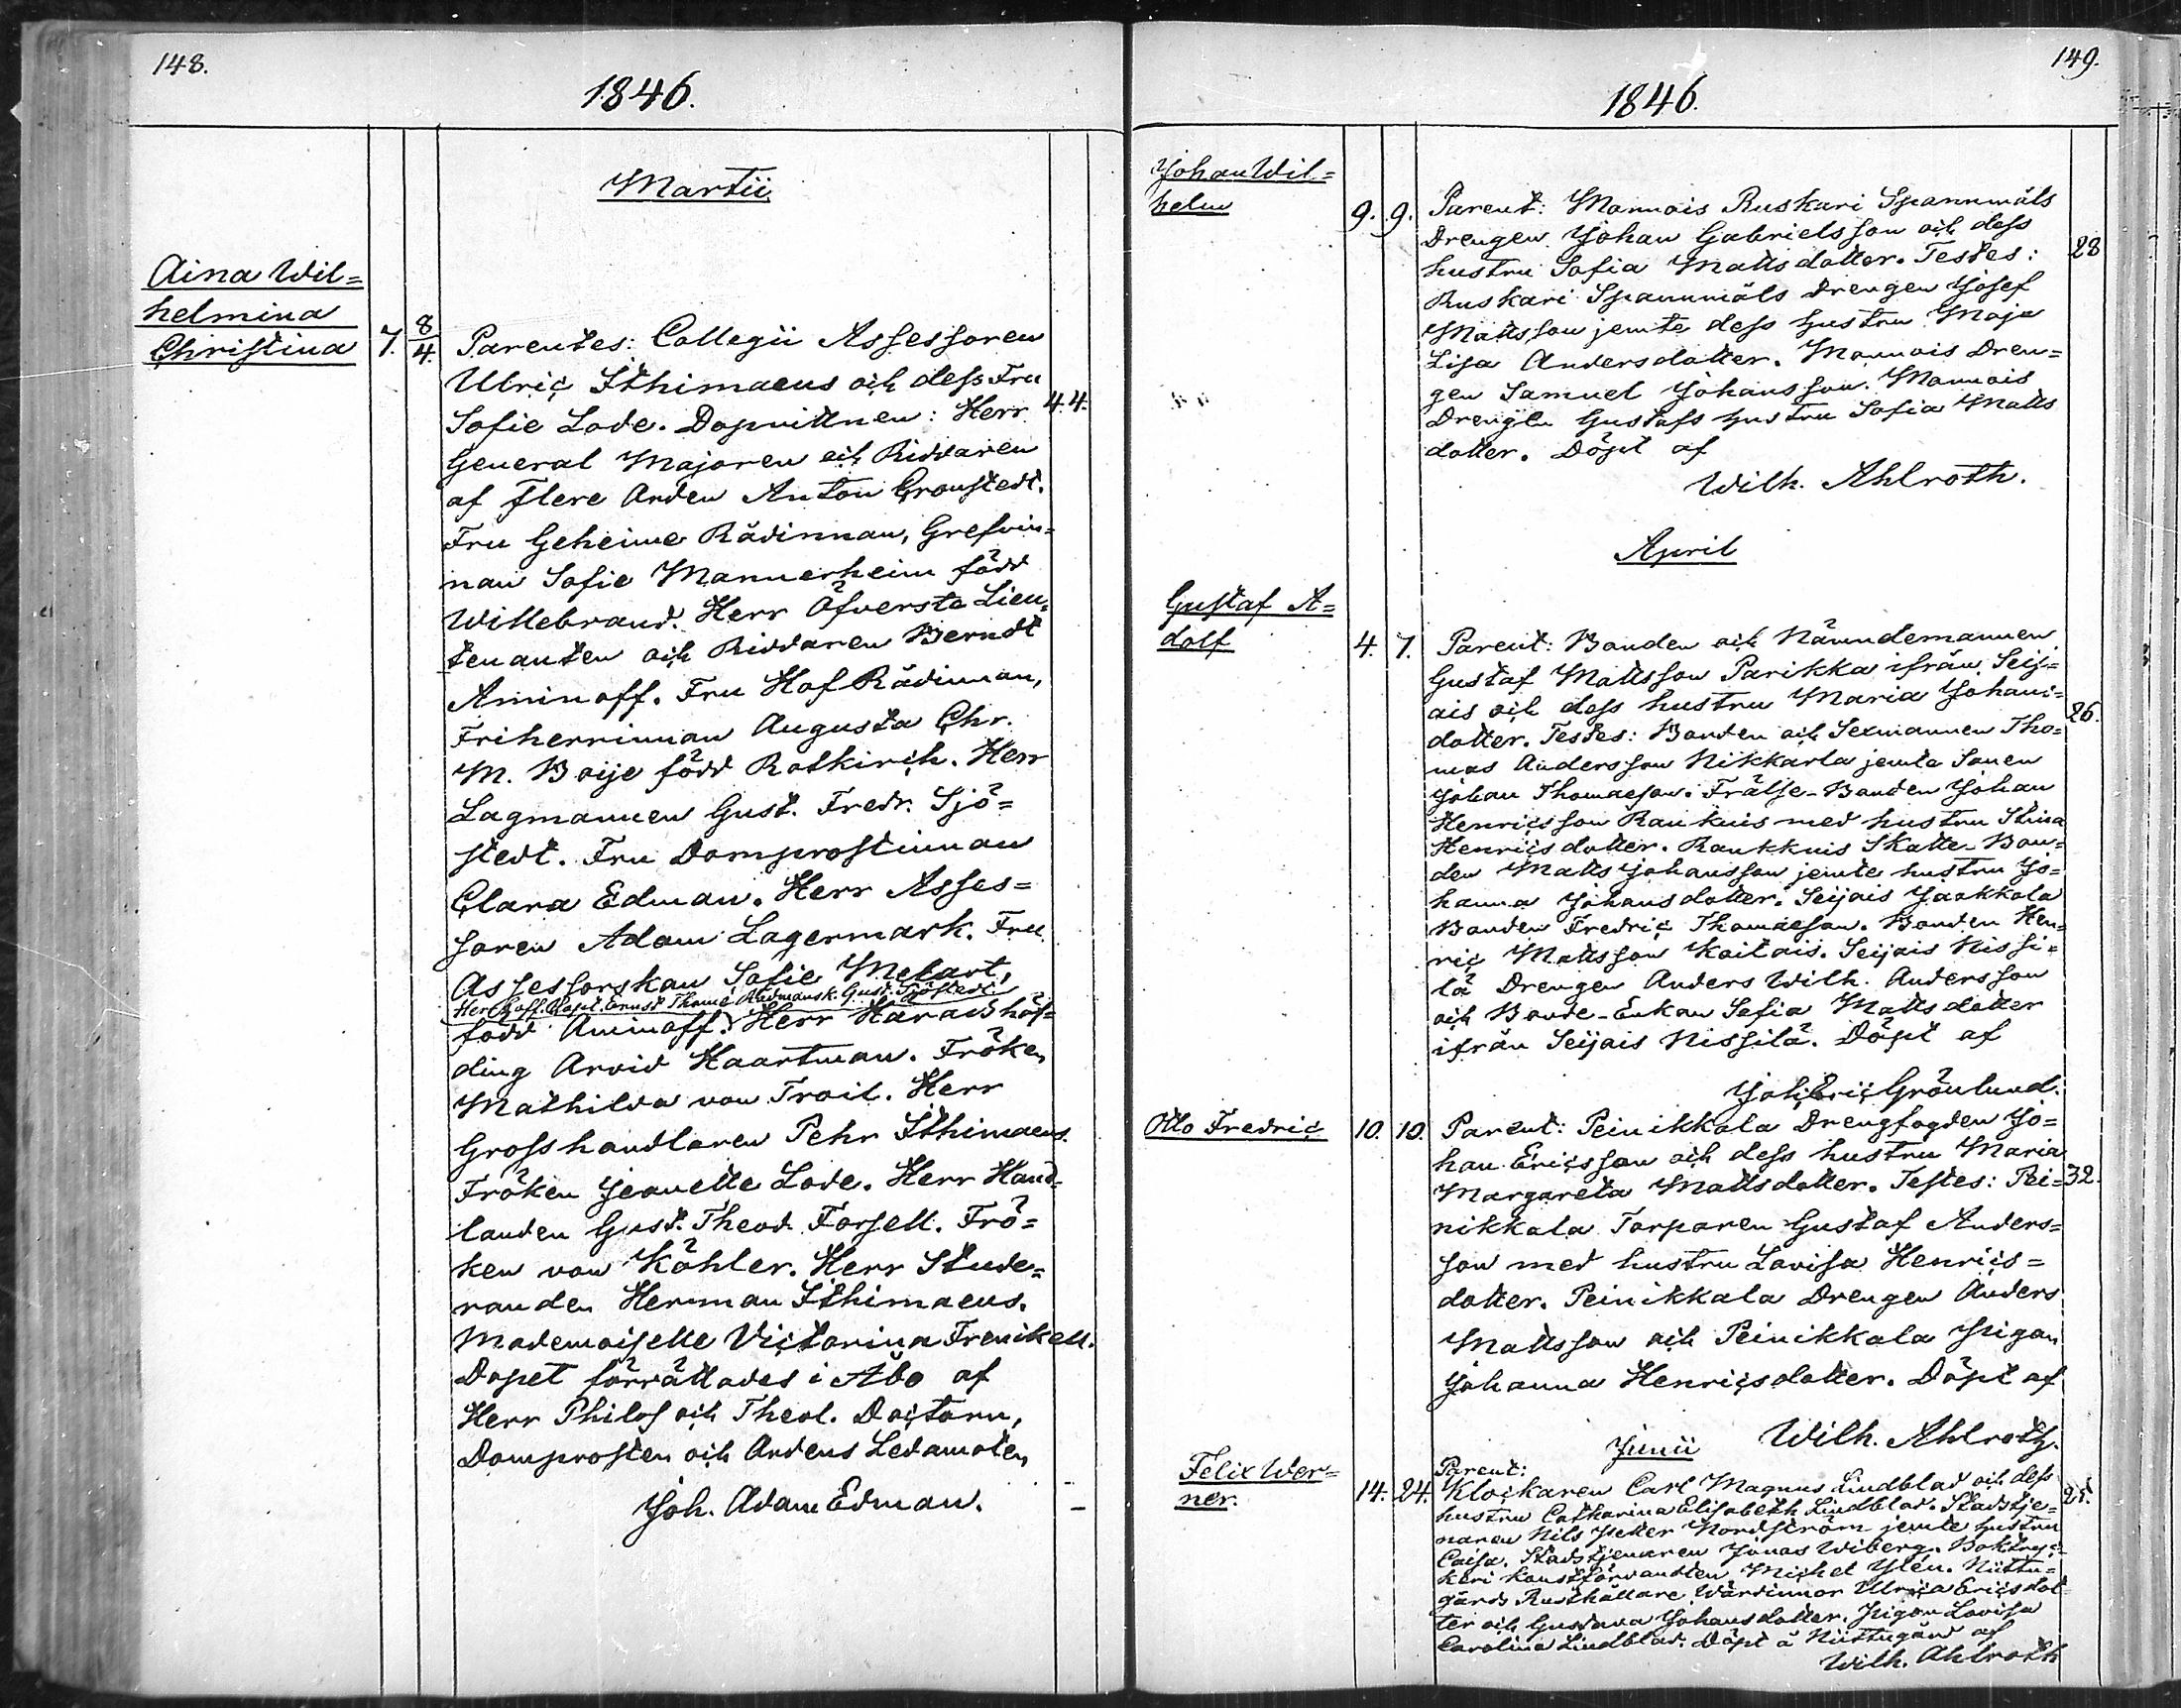 148.
1846.
Martii
Aina Wil=
helmina
Christina 7. 8/4.
Parentes: Collegii Assessoren
Ulric Ithimaeus och dess Fru
Sofie Lode. Dopvittnen: Herr 44.
General Majoren och Riddaren
af flere Orden Anton Cronstedt.
Fru Geheime Rådinnan, Grefvin=
nan Sofie Mannerheim född
Willebrand. Herr Öfverste Lieu=
tenanten och Riddaren Berndt
Aminoff. Fru Hof Rådinnan,
Friherrinnan Augusta Chr.
M. Boije född Rotkirch. Herr
Lagmannen Gust. Fredr. Sjö=
stedt. Fru Domprostinnan
Clara Edman. Herr Asses=
soren Adam Lagermark. Fru
Assessorskan Sofie Melart,
Herr Hoff. Ernst Thomé Rådmansk. Gust. Sjöstedt
född Aminoff. Herr Häradshöf=
ding Arvid Haartman. Fröken
Mathilda von Troil. Herr
Grosshandlaren Pehr Ithimaeus.
Fröken Jeanette Lode. Herr Hand=
landen Gust. Theod. Forsell. Frö=
ken von Köhler. Herr Stude=
randen Herman Ithimaeus.
Mademoiselle Victorina Frenkell.
Dopet förrättades i Åbo af
Herr Philos och Theol. Doctorn,
Domprosten och Ordens Ledamoten
Joh. Adam Edman.
149.
1846.
Johan Wil=
helm 9. 9.
Parent: Mannois Ruskari Spannmåls
Drengen Johan Gabrielsson och dess
hustru Sofia Mattsdotter. Testes: 28
Ruskari Spannmåls Drengen Josef
Mattsson jemte dess hustru Maja
Lisa Andersdotter. Mannois Dren=
gen Samuel Johansson. Mannois
Drengen Gustafs hustru Sofia Matts
dotter. Döpt af
Wilh. Ahlroth.
April
Gustaf A=
dolf 4. 7.
Parent: Bonden och Nämndemannen
Gustaf Mattsson Parikka ifrån Seij=
ais och dess hustru Maria Johans= 26.
dotter. Testes: Bonden och Sexmannen Tho=
mas Andersson Nikkarla jemte Sonen
Johan Thomaeson. Frälse-Bonden Johan
Henricsson Raukuis med hustru Stina
Henricsdotter. Raukkuis Skatte-Bon=
den Matts Johansson jemte hustru Jo=
hanna Johansdotter. Seijais Jaakkola
Bonden Fredric Thomaeson. Bonden Hen=
ric Mattsson Kaitais. Seijais Nissi=
lä Drengen Anders Wilh. Andersson
och Bonde-Enkan Sofia Mattsdotter
ifrån Seijais Nissilä. Döpt af
Joh. Eric Grönlund.
Otto Fredric 10. 10.
Parent: Peinikkala Drengfogden Jo=
han Ericsson och dess hustru Maria
Margareta Mattsdotter. Testes: Pei= 32.
nikkala Torparen Gustaf Anders=
son med hustru Lovisa Henrics=
dotter. Peinikkala Drengen Anders
Mattsson och Peinikkala Pigan
Johanna Henricsdotter. Döpt af
Wilh. Ahlroth.
Junii
Felix Wer=
ner. 14. 24.
Parent:
Klockaren Carl Magnus Lindblad och dess 25.
hustru Catharina Elisabeth Lindblad. Stadstje=
naren Nils Petter Nordström jemte hustru
Caisa. Stadstjenaren Jonas Wiberg. Boktryc=
keri Konstförvandten Michel Ylén. Niittu=
gårds Rusthållare Wärdinnor Ulrica Ericsdot=
ter och Gustava Johansdotter. Pigan Lovisa
Carolina Lindblad. Döpt å Niittugård af
Wilh. Ahlroth